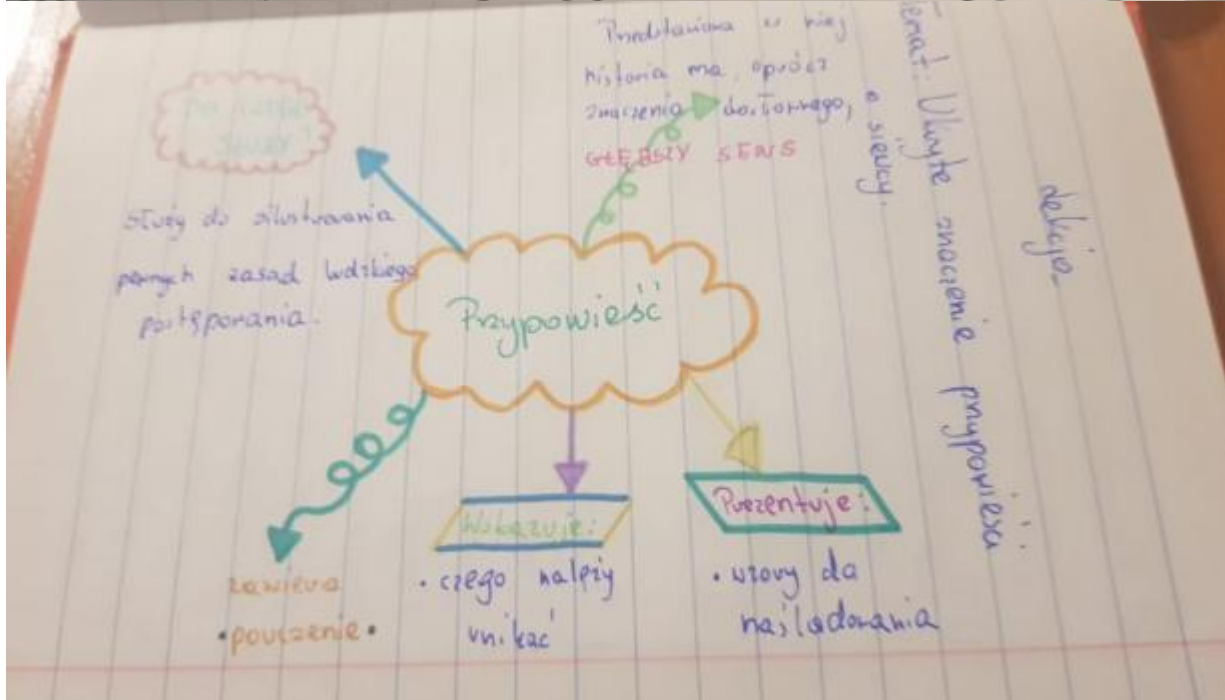 Lekcja
Temat: Ukryte znaczenie przypowieści
o siewcy.
Przedstawiona w niej
historia ma, oprócz
znaczenia dosłownego,
GŁĘBSZY SENS
Służy do zilustrowania
pewnych zasad ludzkiego
postępowania.
Przypowieść
zawiera
• pouczenie •
Wskazuje:
• czego należy
unikać
Prezentuje:
• wzory do
naśladowania